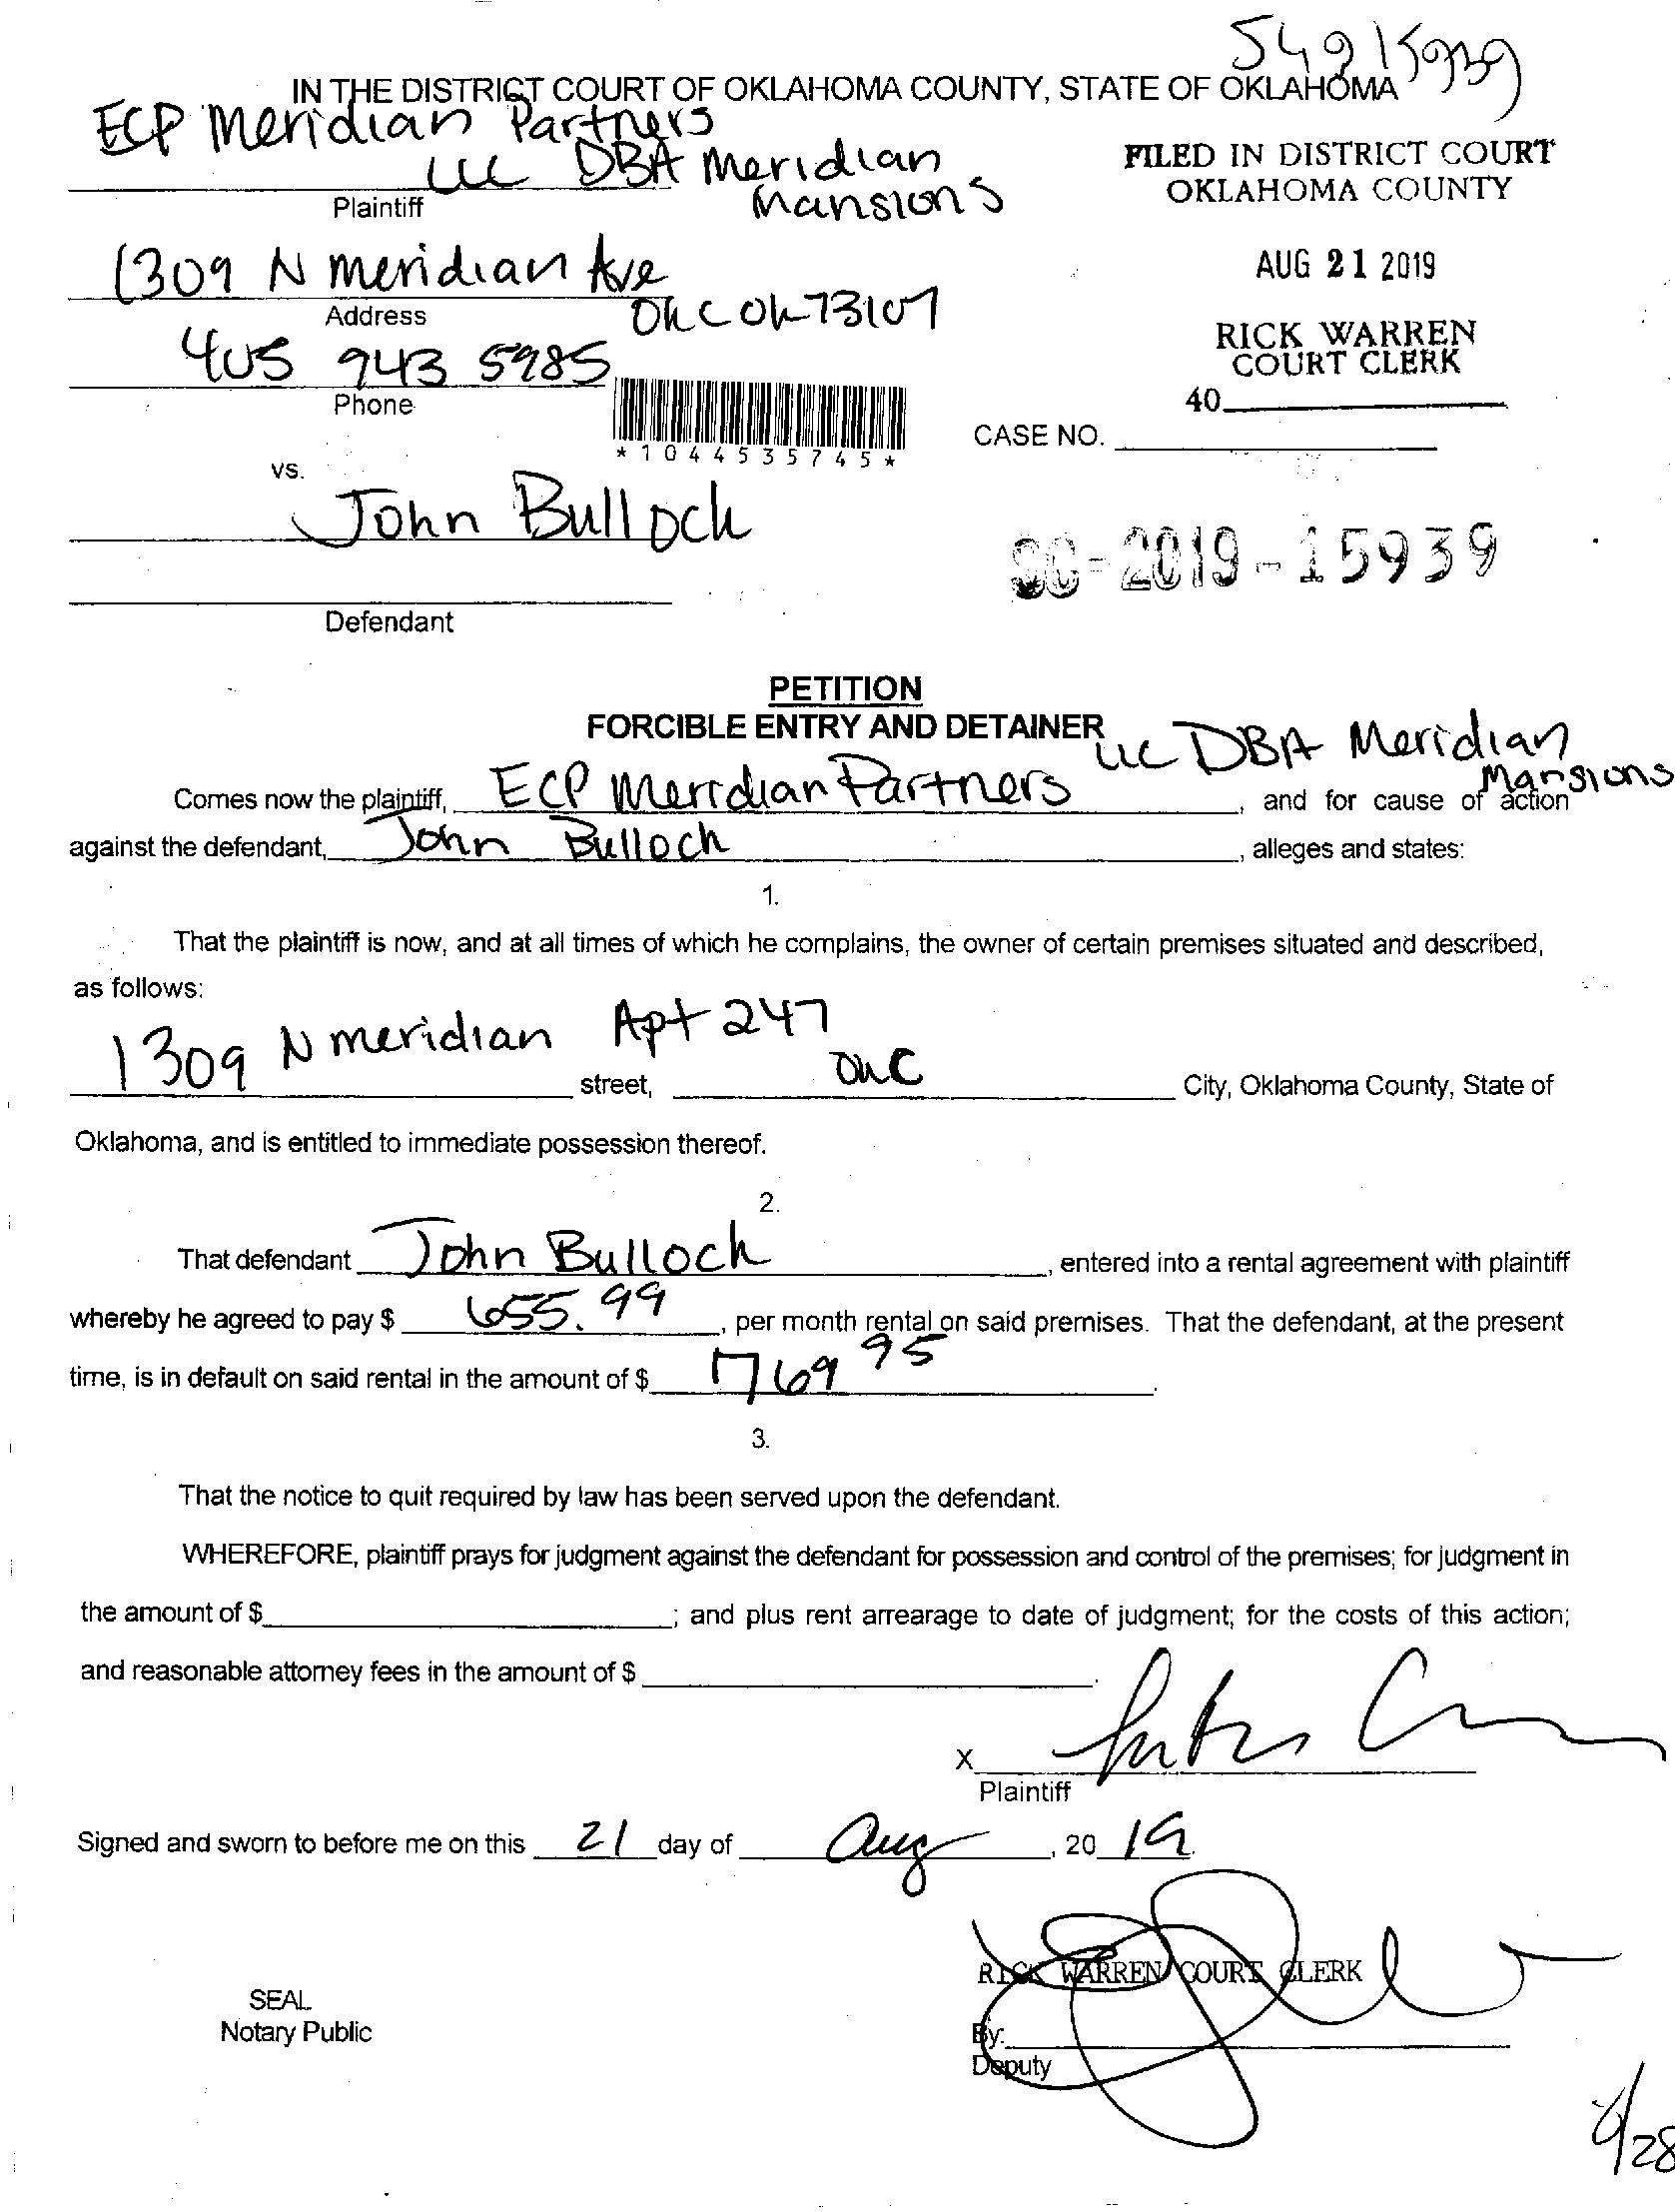 IN THE DISTRICT COURT OF OKLAHOMA COUNTY, STATE OF OKLAHOMA
ECP Meridian Partners
LLC DBA Meridian
Mansions
Plaintiff
FILED IN DISTRICT COURT
OKLAHOMA COUNTY
1309 N Meridian Ave
Address
OKC OK 73107
AUG 21 2019
405 943 5985
Phone
RICK WARREN
COURT CLERK
40
*1044535745*
CASE NO.
vs.
John Bullock
SC-2019-15939
Defendant
PETITION
FORCIBLE ENTRY AND DETAINER
LLC DBA Meridian
Mansions
Comes now the plaintiff, ECP Meridian Partners, and for cause of action
against the defendant, John Bullock, alleges and states:
1.
That the plaintiff is now, and at all times of which he complains, the owner of certain premises situated and described,
as follows:
1309 N meridian Apt 247
street, OKC City, Oklahoma County, State of
Oklahoma, and is entitled to immediate possession thereof.
2.
That defendant John Bullock, entered into a rental agreement with plaintiff
whereby he agreed to pay $ 655.99, per month rental on said premises. That the defendant, at the present
time, is in default on said rental in the amount of $ 1769 95.
3.
That the notice to quit required by law has been served upon the defendant.
WHEREFORE, plaintiff prays for judgment against the defendant for possession and control of the premises; for judgment in
the amount of $; and plus rent arrearage to date of judgment; for the costs of this action;
and reasonable attorney fees in the amount of $.
X
Plaintiff
Signed and sworn to before me on this 21 day of Aug, 20 19.
RICK WARREN COURT CLERK
SEAL
Notary Public
By:
Deputy